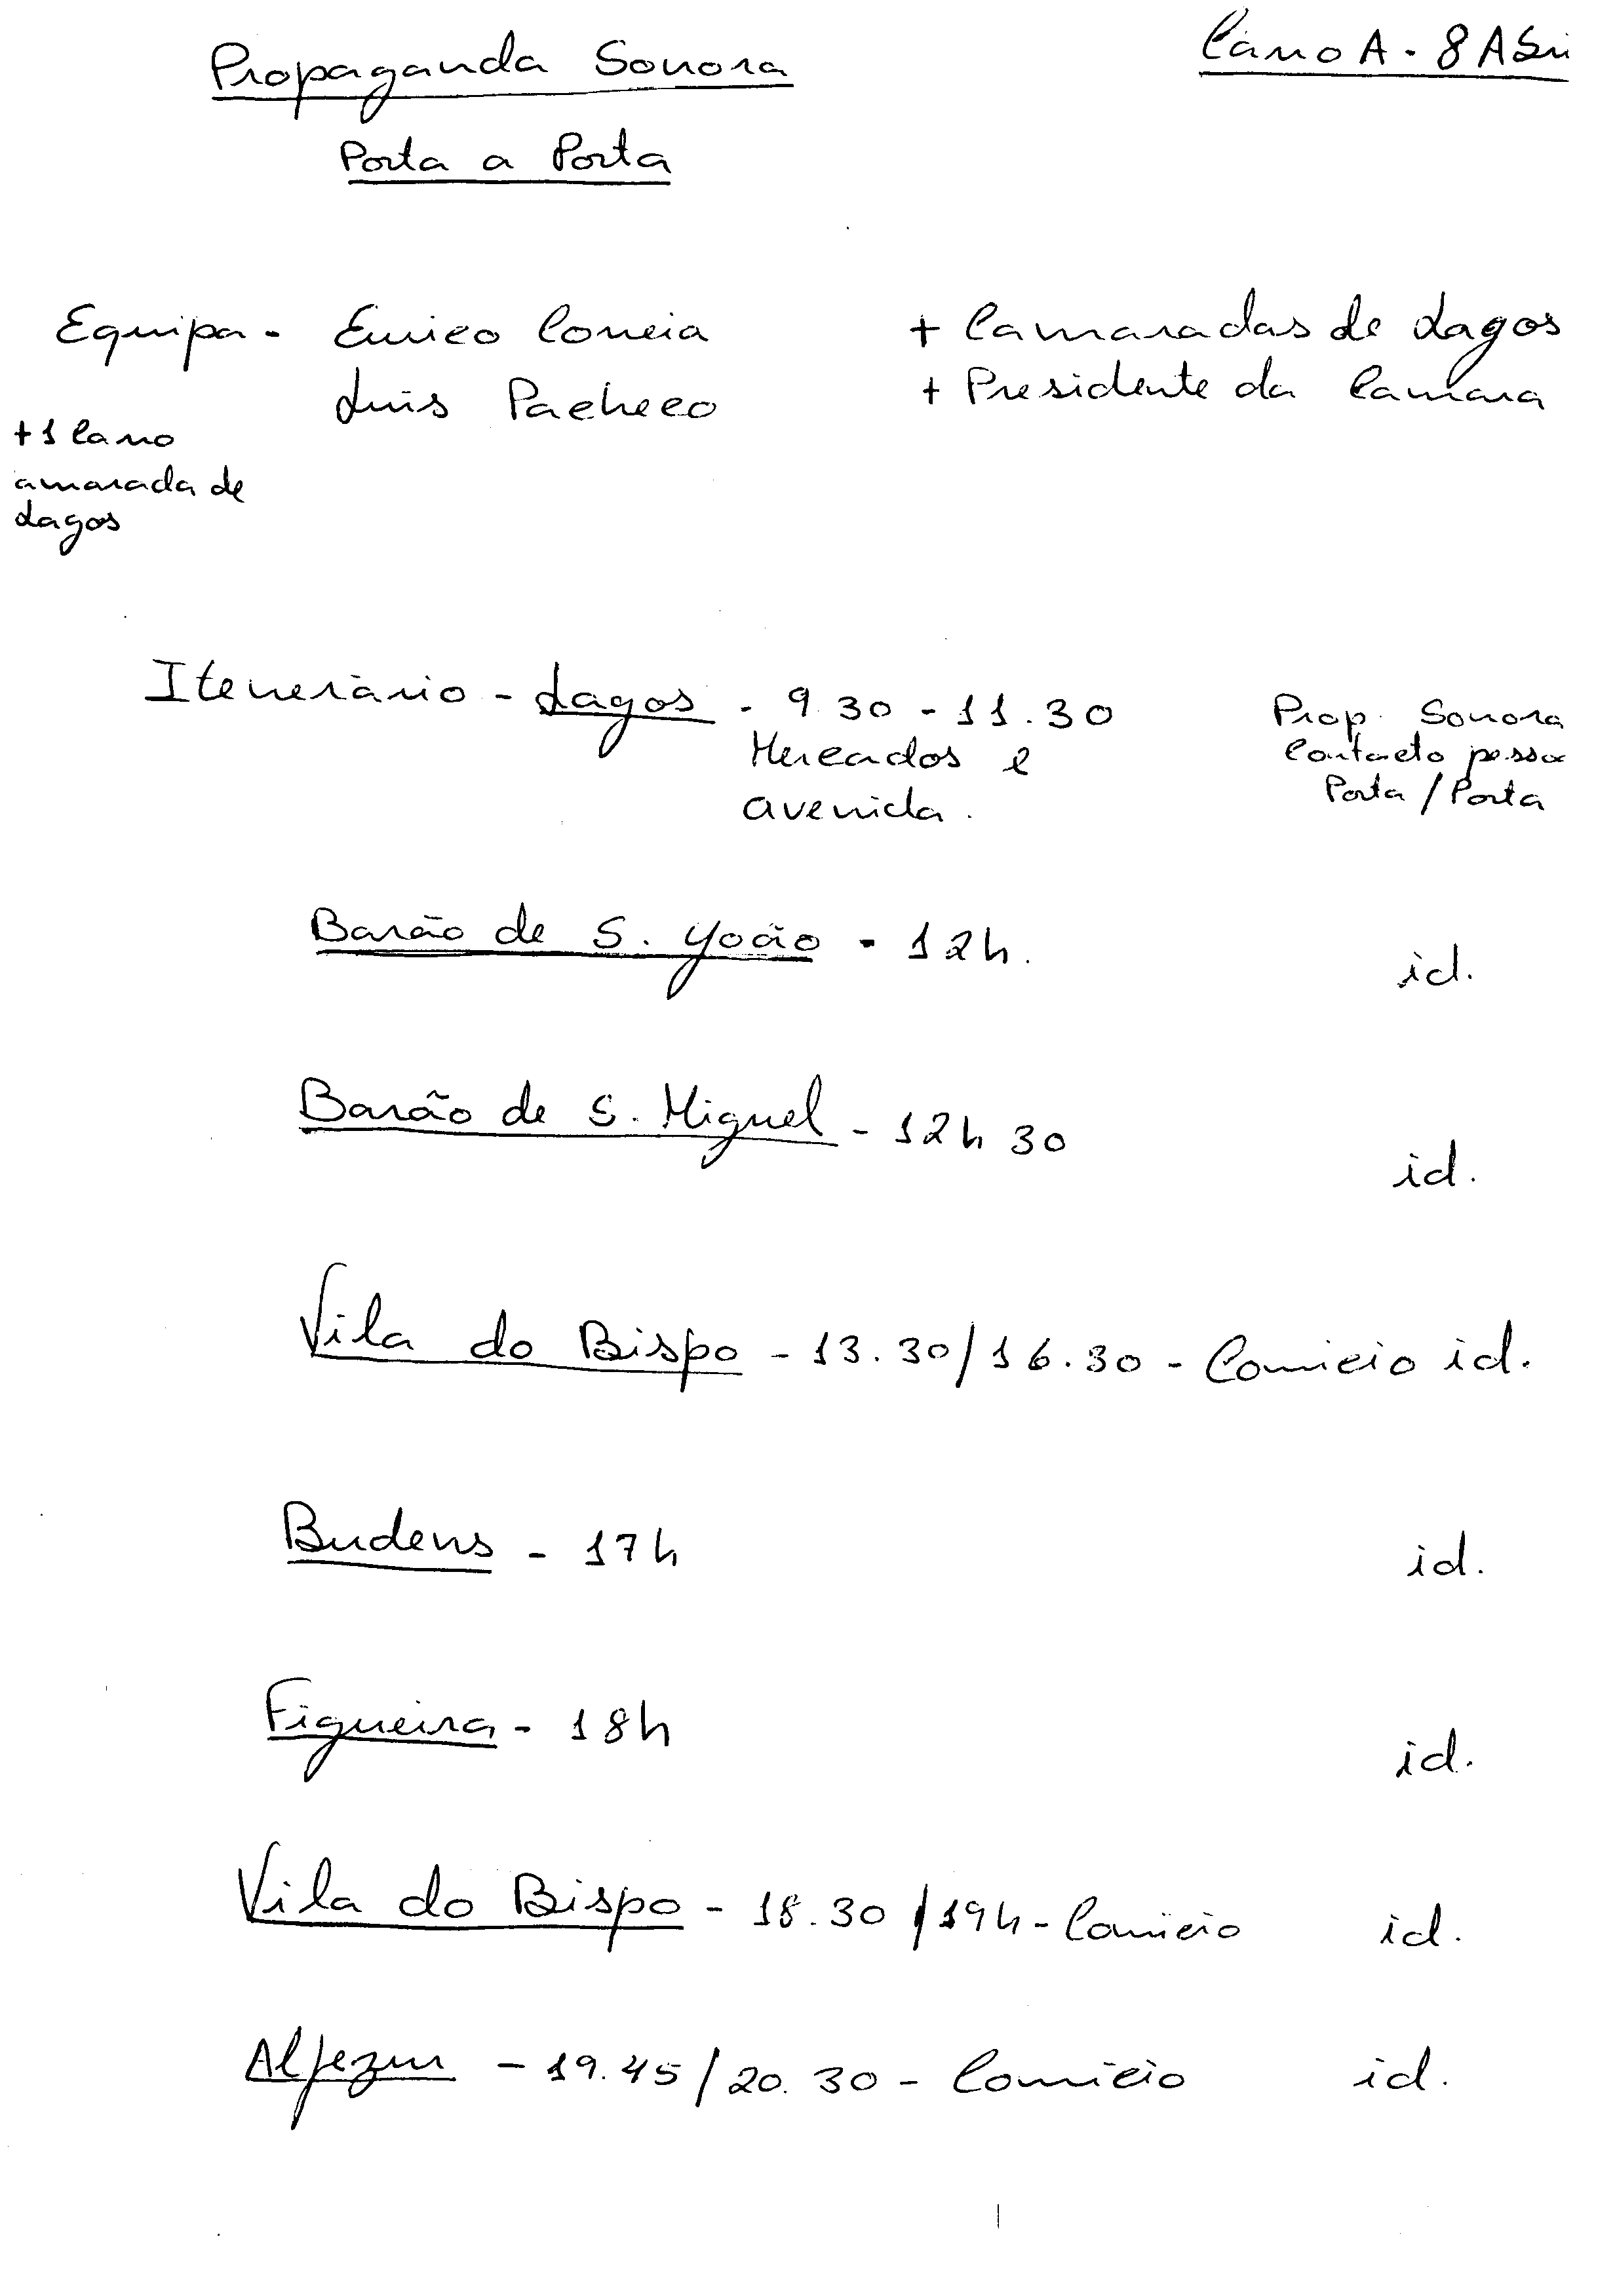 Propaganda Sonora
Carro A - 8 Abri
Porta a Porta
Equipa - Eurico Correia + Camaradas de Lagos
Luis Pacheco + Presidente da Camara
+ 1 Carro
amarada de
Lagos
Itenerário - Lagos - 9.30 - 11.30 Prop. Sonora
Mercados e Contacto pessoa
avenida. Porta / Porta
Barão de S. João - 12h. id.
Barão de S. Miguel - 12h 30 id.
Vila do Bispo - 13.30/16.30 - Comicio id.
Budens - 17h id.
Figueira - 18h id.
Vila do Bispo - 18.30 / 19h - Comicio id.
Aljezur - 19.45 / 20.30 - Comicio id.